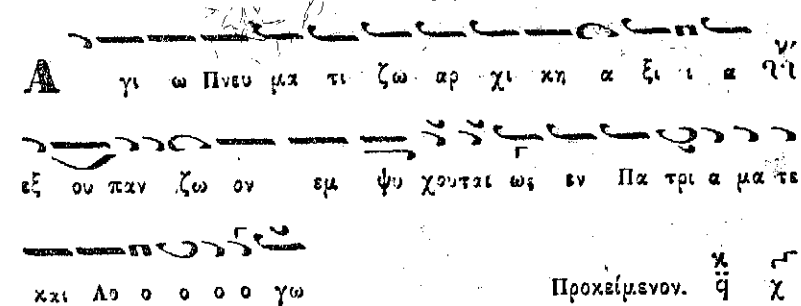 Α γι ω Πνευ μα τι ζω αρ χι κη α ξι ι α
εξ ου παν ζω ον εμ ψυ χουται ως εν Πα τρι α μα τε
και Λο ο ο ο ο γω Προκείμενον.